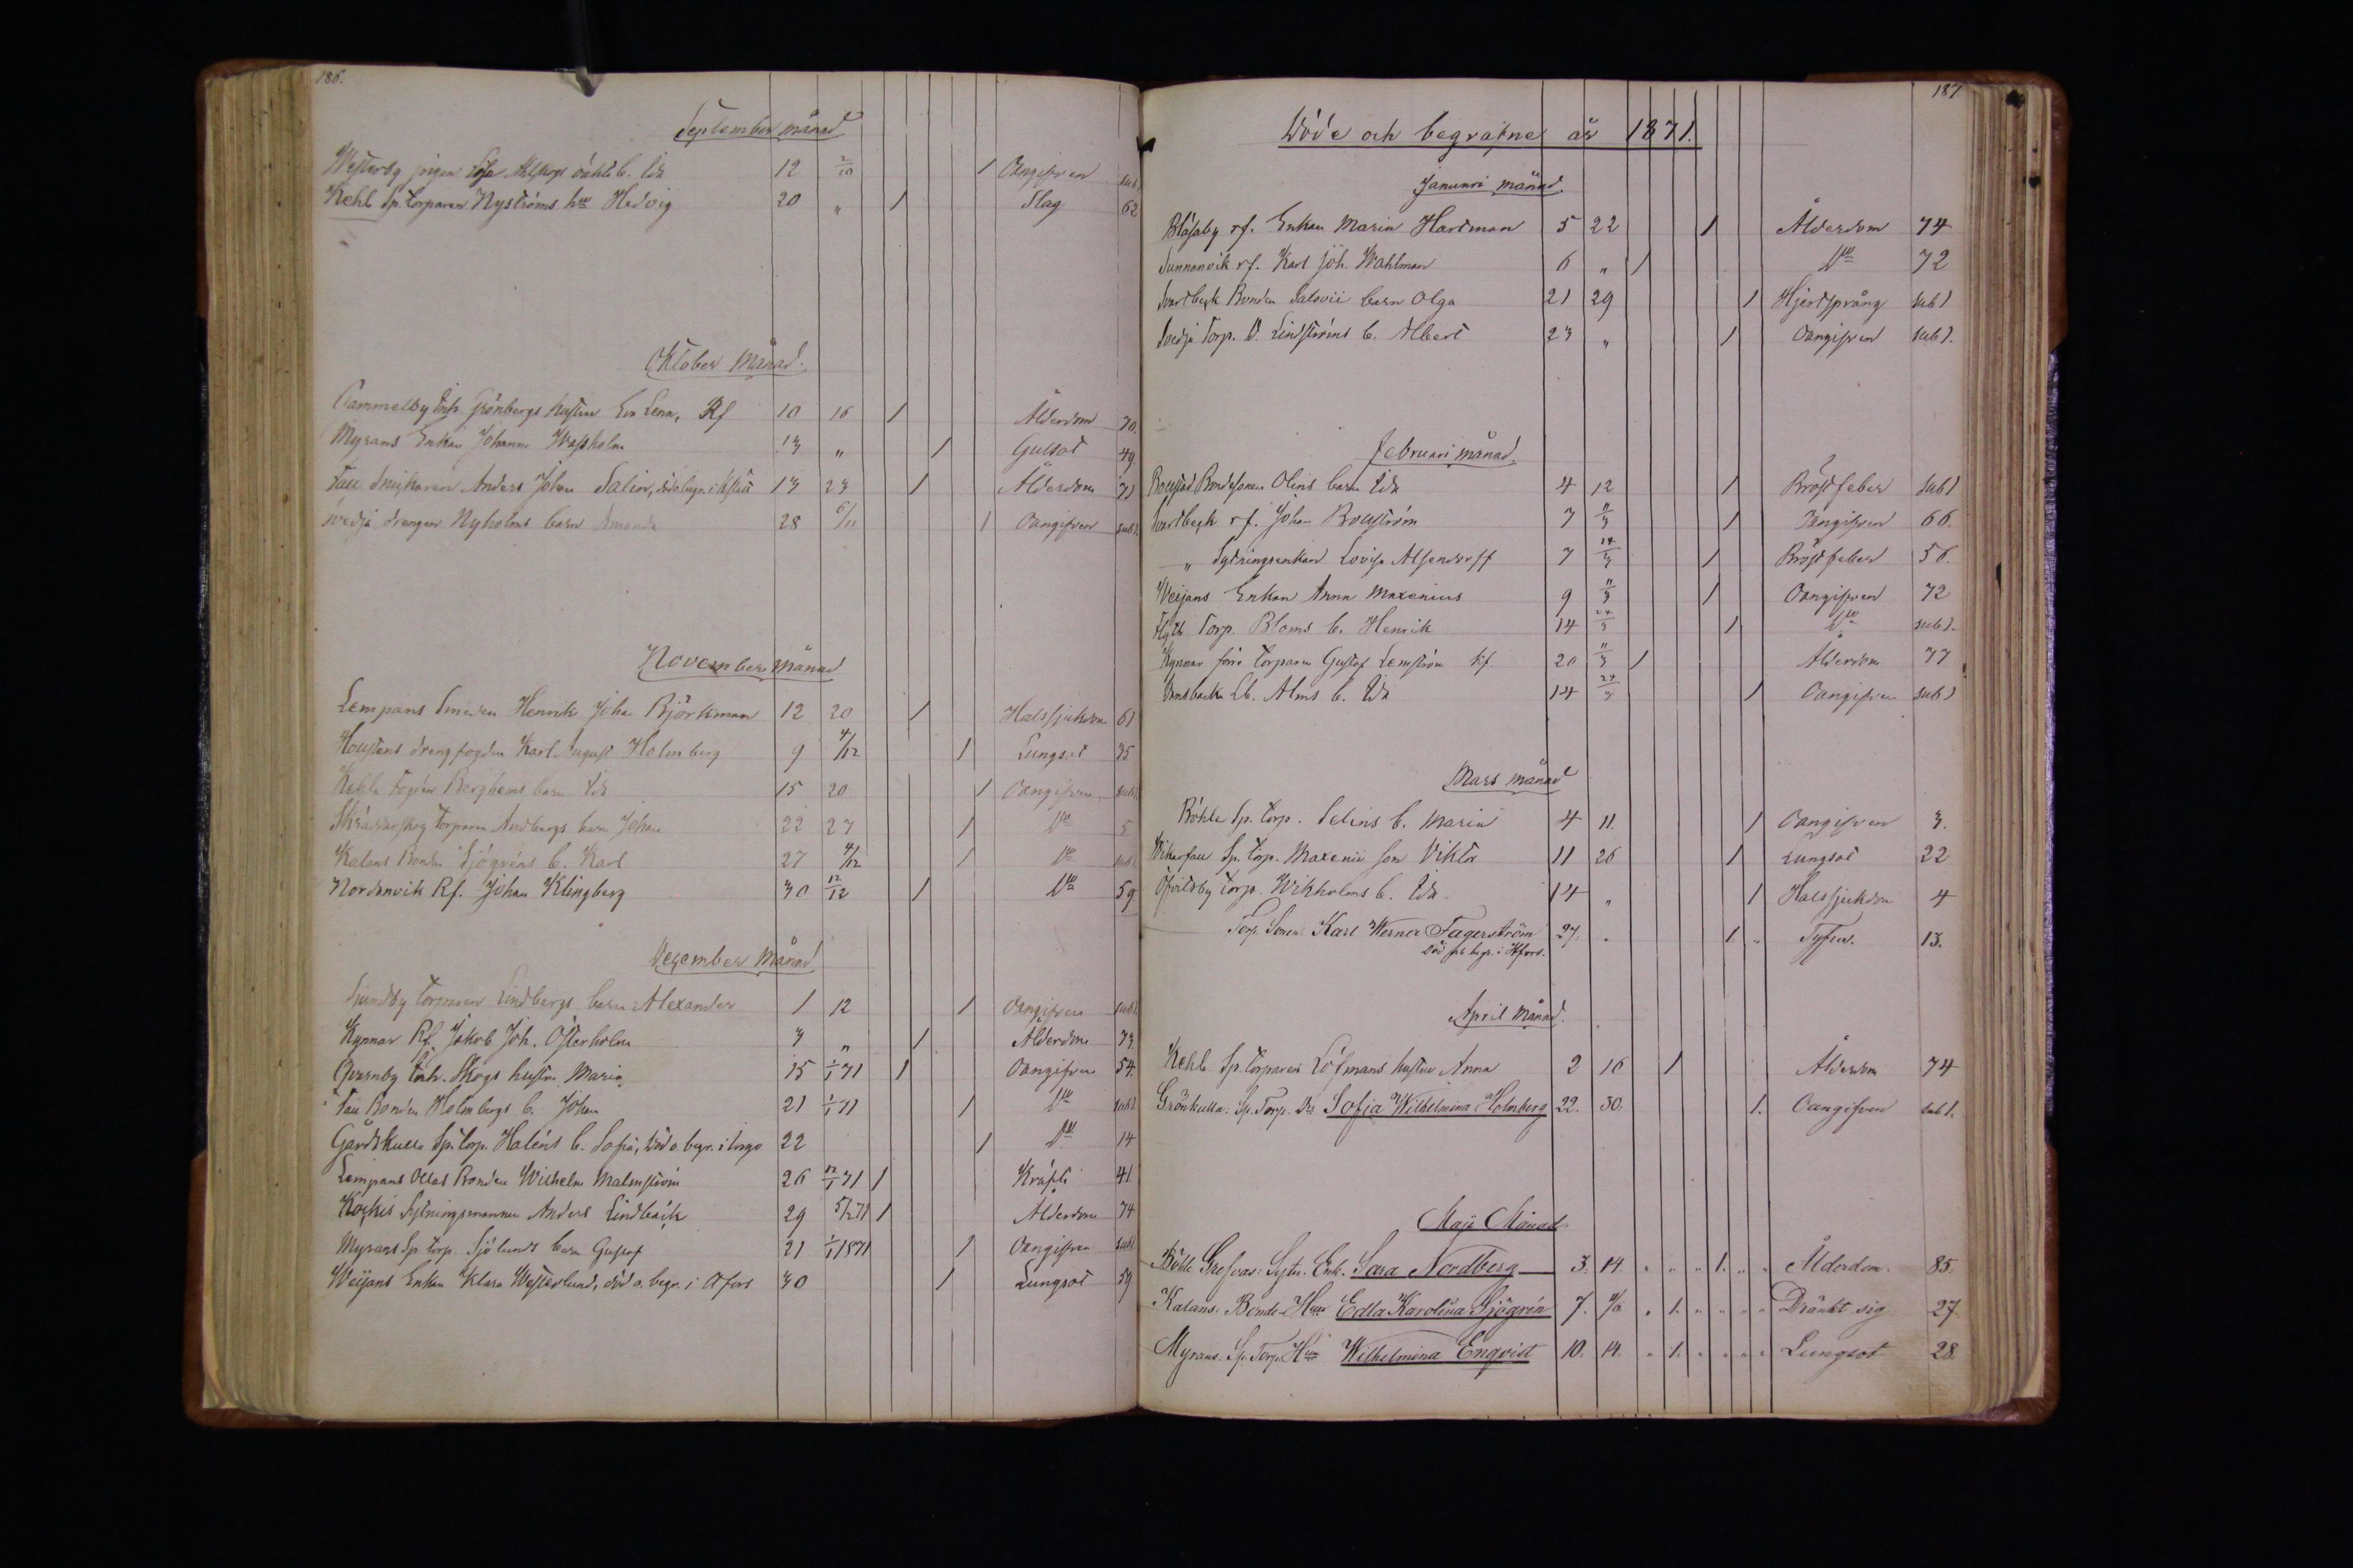 186.
September månad
Westerby pigan Sofia Ahlskogs oäkta b. Ida 12 2/10 1 Oangifven sub 1
Kehl Sp. torparen Nyströms hu Hedvig 20 " 1 Slag 62
Oktober månad.
Gammelby Inh. Grönbergs hustru Eva Lena, Rf 10 16 1 Ålderdom 70.
Myrans Enkan Johanna Wassholm 13 " 1 Gulsot 49
Fall Snickaren Anders Johan Salin, död o begr. i 13 23 1 Ålderdom 71
Svedja drengen Nyholms barn Amanda 28 6/11 1 Oangifven sub 1.
November månad
Lempans Smeden Henrik Johan Björkman 12 20 1 Halssjukdom 61
drengfogden Karl August Holmberg 9 4/12 1 Lungsot 35
Kehla Fogden Berghems barn Ida 15 20 1 Oangifven sub 1
torparen Andbergs barn Johan 22 27 1 Do 5
Kalans Bonden Sjögréns b. Karl 27 4/12 1 Do sub 1
Nordanvik Rf. Johan Klingberg 30 12/12 1 Do 59
December månad
Sjundby torparen Lindbergs barn Alexander 1 12 1 Oangifven sub 1
Kynnar Rf. Jakob Joh. Österholm 3 " 1 Ålderdom 73.
Qvarnby Inh. Skogs hustru Maria 15 1/1 71 1 Oangifven 54.
Fall Bonden Holmbergs b. Johan 21 1/1 71 1 Do sub 1
Gårdskulla Sp. torp. Haléns b. Sofia, död o. begr. i Ingo 22 1 Do 14
Lempans Ollas Bonden Wilhelm Malmström 26 12/1 71 1 Kräfti 41.
Kockis Sytningsmannen Anders Lindbäck 29 5/2 71 1 Ålderdom 74
Myrans Sp torp. Sjölunds barn Gustaf 21 1/1 1871 1 Oangifven sub 1
Weijans Enkan Klara Westerlund, död o. begr. i Hfors 30 1 Lungsot 59
187
Döde och begrafne år 1871.
Januari månad.
Blåsaby rf. Enkan Maria Hartman 5 22 1 Ålderdom 74
Sunnanvik rf. Karl Joh. Wahlman 6 " 1 Do 72
Svartbeck Bonden Salovii barn Olga 21 29 1 Hjertsprång sub 1
Svedja Torp. A. Lindströms b. Albert 23 " 1 Oangifven sub 1.
Februari månad.
Bondesonen Olins barn Ida 4 12 1 Bröstfeber sub 1
Svartbeck rf. Johan Boström 7 11/3 1 Oangifven 66.
" Sytningsenkan Lovisa Alfendorff 7 14/3 1 Bröstfeber 56.
Weijans Enkan Anna Maxenius 9 11/3 1 Oangifven 72
Flyth Torp. Bloms b. Henrik 14 1 Do sub 1.
Kynnar förra torparen Gustaf Lemström Rf. 20 11/3 1 Ålderdom 77
Lb. Alms b. Ida 14 1 Oangifven sub 1
Mars månad
Böhle Sp. torp. Selins b. Maria 4 11. 1 Oangifven 3.
Sp. Torp. Maxenii son Viktor 11 26 1 Lungsot 22
Öfvitsby torp. Wikholms b. Ida. 14 " 1 Halssjukdom 4
Torp. Sonen: Karl Werner Fagerström 27. " 1. " Tyfus. 13.
Död och begr. i Hfors.
April månad.
Kehla Sp. torparen Löfmans hustru Anna 2 16 1 Ålderdom 74
Grönkulla: Sp. Torp. Dr Sofia Wilhelmina Holmberg 22. 30. 1. Oangifven sub 1.
Maji Månad
Böhle Grefvas: Sytn. Enk. Sara Nordberg 3. 14. " " " 1. " " Ålderdom. 85.
Kalans: Bonde Hru Edla Karolina Sjögrén 7. " 1. " " " " Dränkt sig 27.
Myrans: Sp. Torp. Hru Wilhelmina Enqvist 10. 14. " 1. " " " " Lungsot 28.